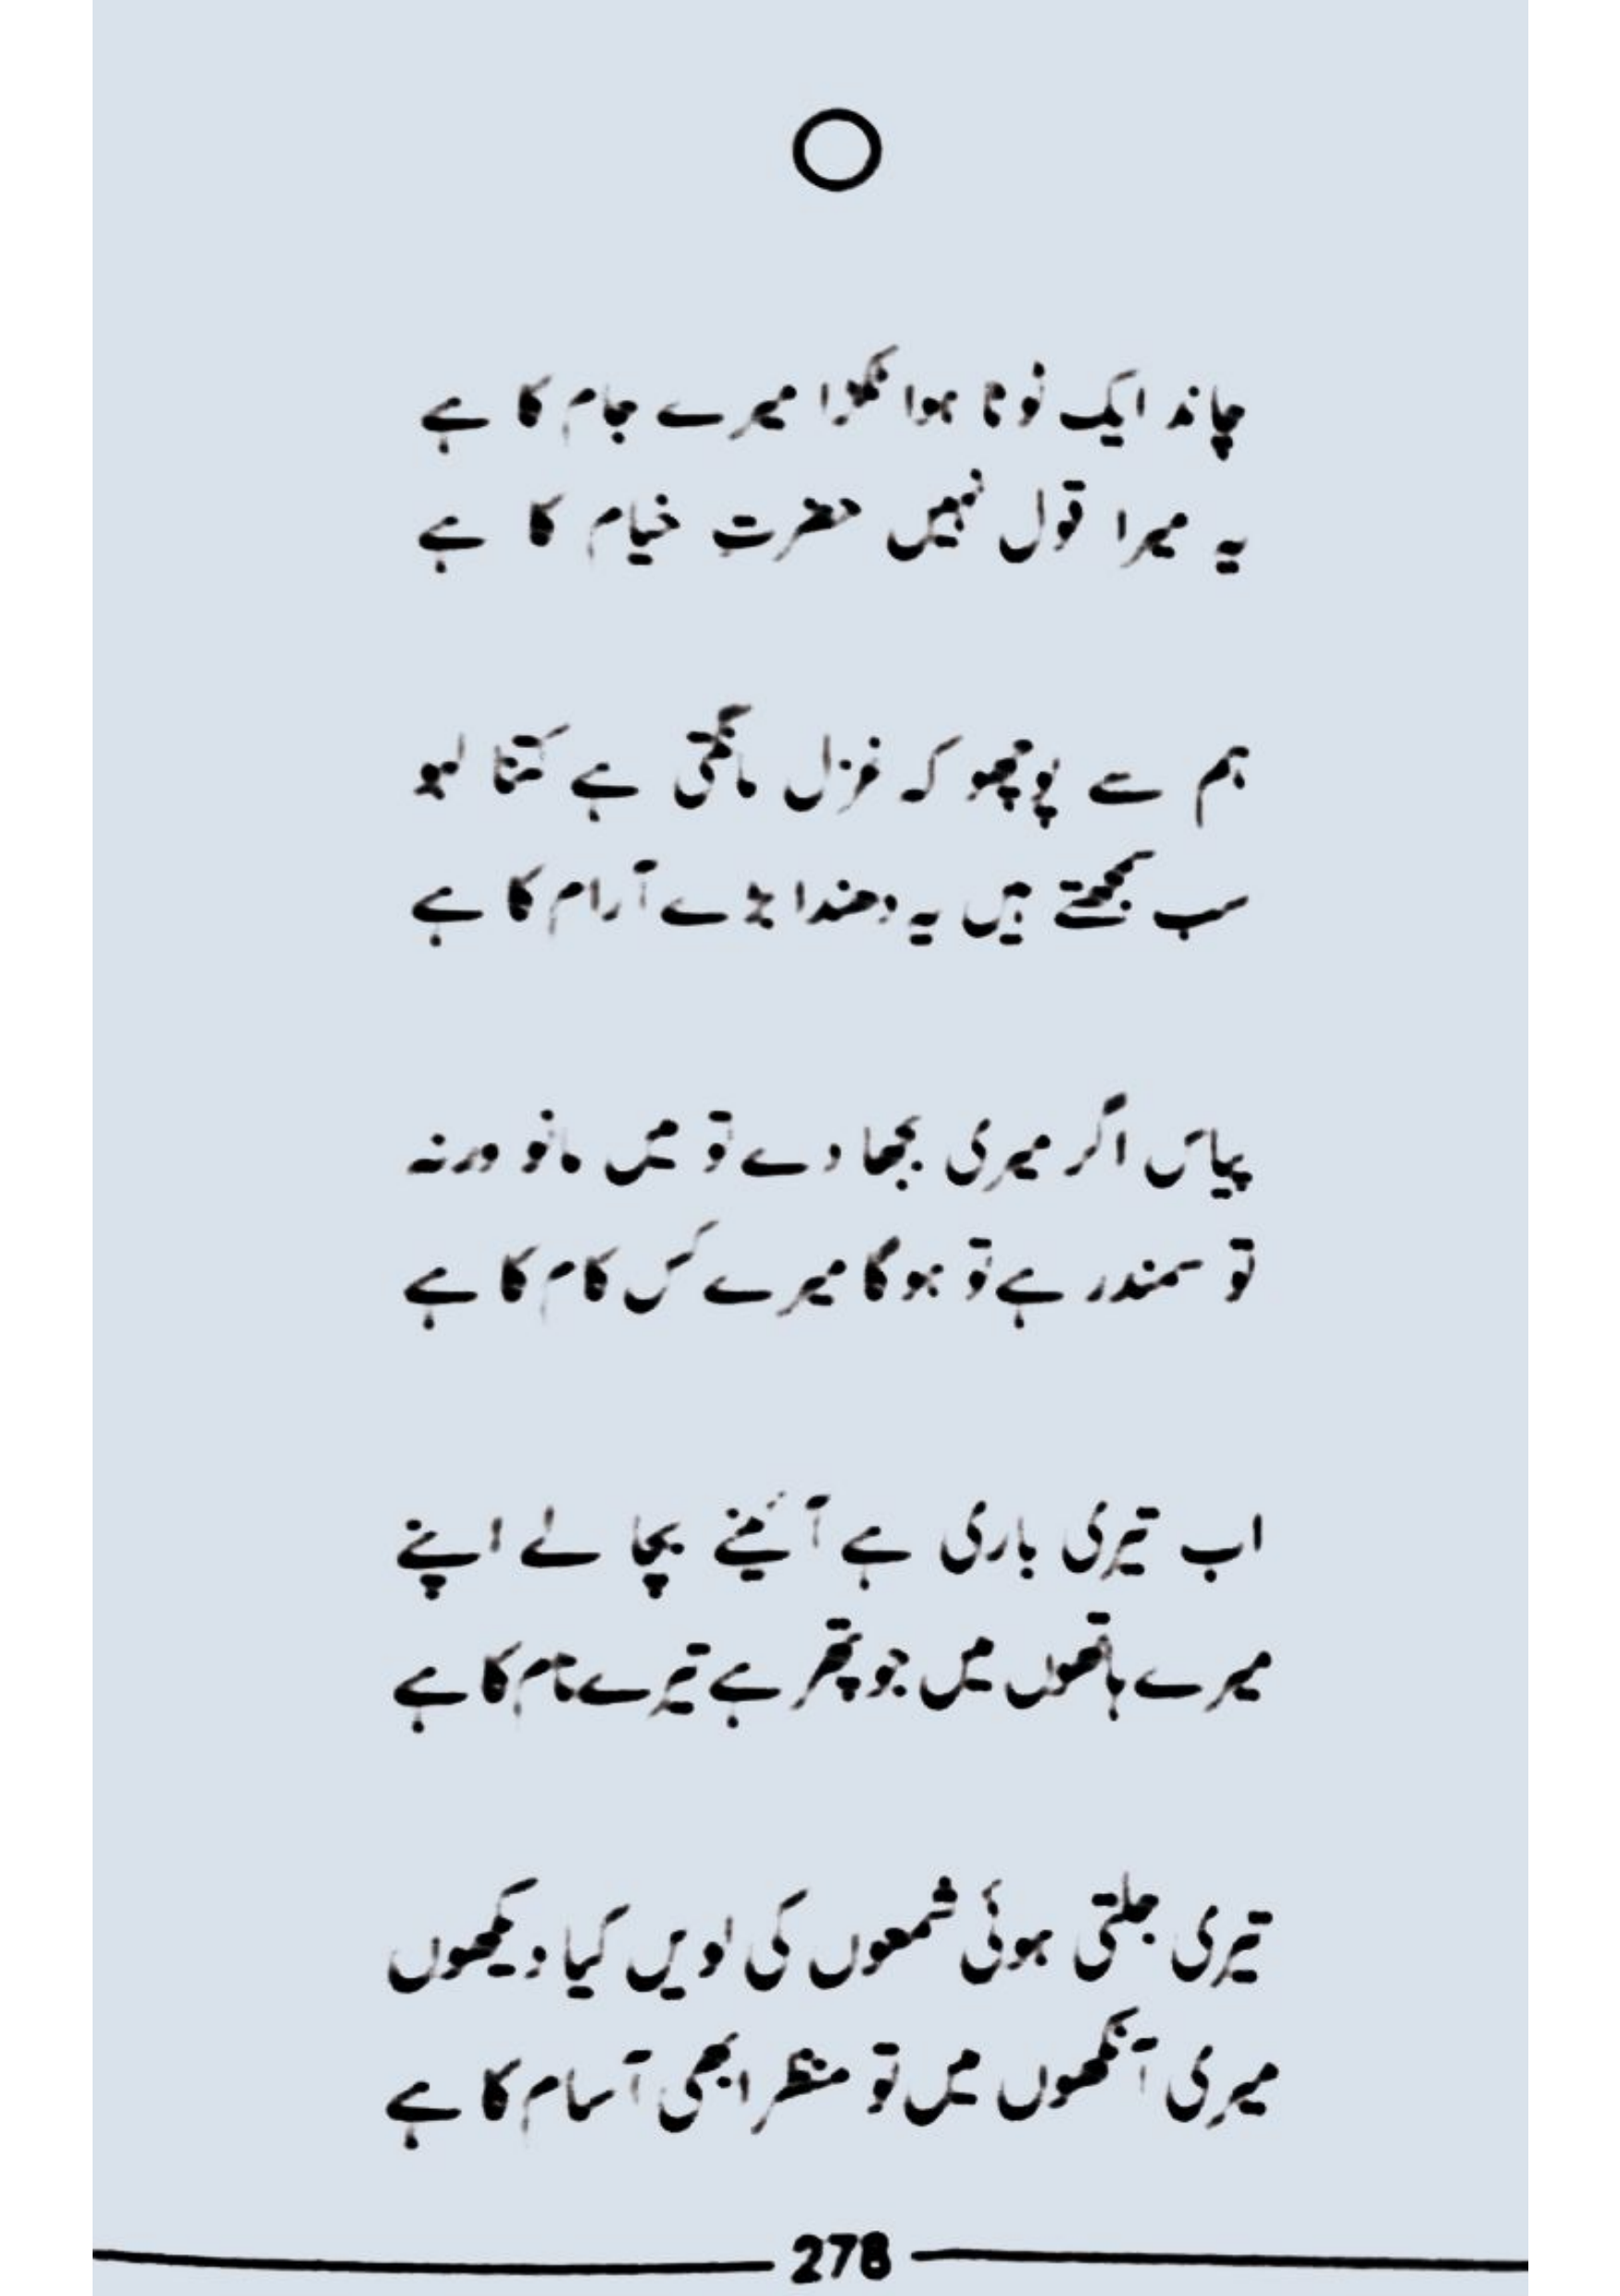 چاند ایک ٹوٹا ہوا ٹکڑا میرے جام کا ہے
یہ میرا قول نہیں حضرتِ خیام کا ہے
ہم سے پوچھو کہ غزل مانگتی ہے کتنا لہو
سب سمجھتے ہیں یہ دھندا بڑے آرام کا ہے
پیاس اگر میری بجھا دے تو میں مانو ورنہ
تو سمندر ہے تو ہوگا میرے کس کام کا ہے
اب تیری باری ہے آئینے بچا لے اپنے
میرے ہاتھوں میں جو پتھر ہے تیرے نام کا ہے
تیری جلتی ہوئی شمعوں کی لویں کیا دیکھوں
میری آنکھوں میں تو منظر ابھی آسام کا ہے
278